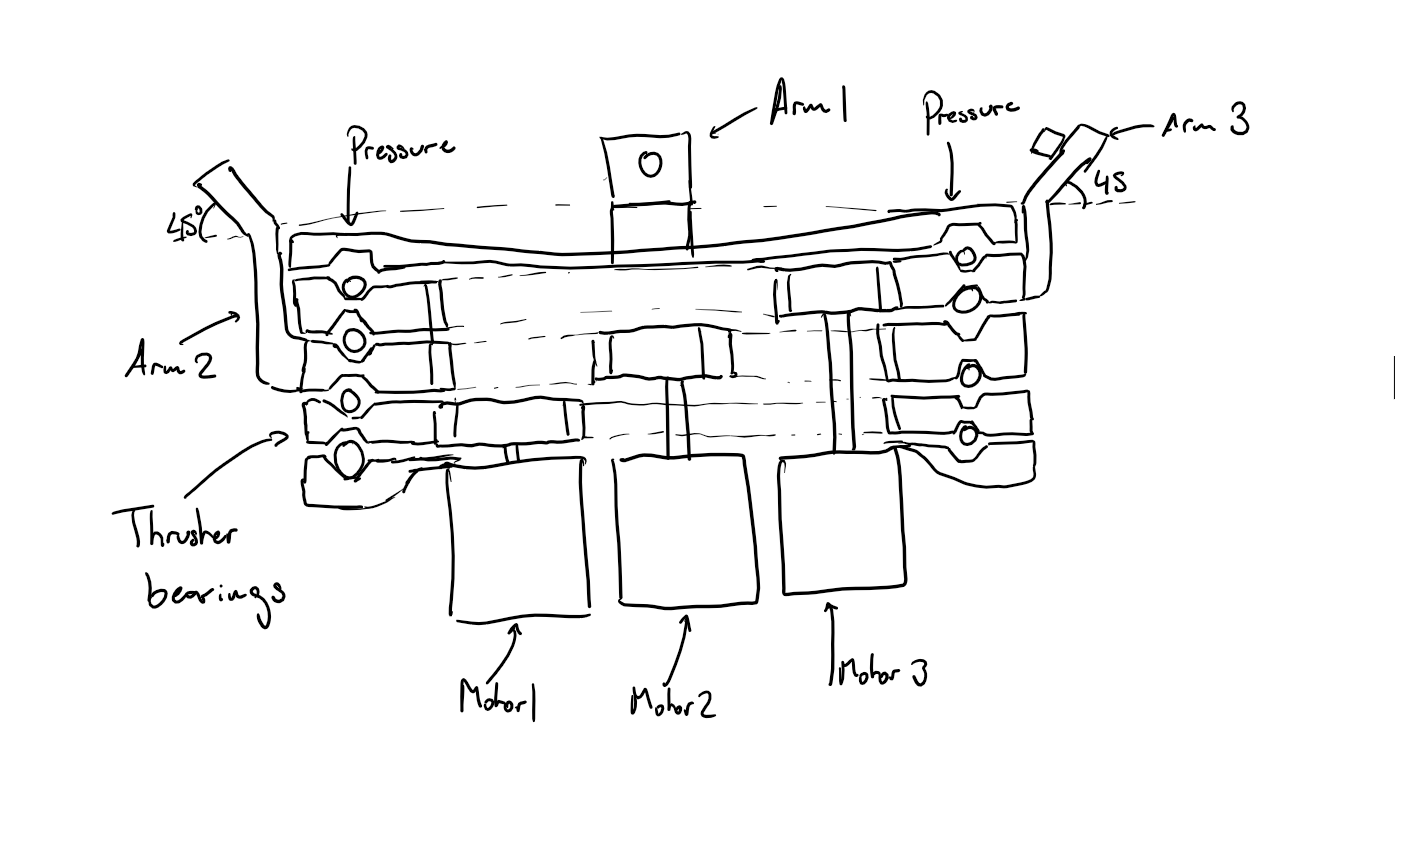 Arm 1
Pressure
Arm 3
Pressure
45
45°
Arm 2
Thrusher
bearings
Motor 3
Motor 1
Motor 2